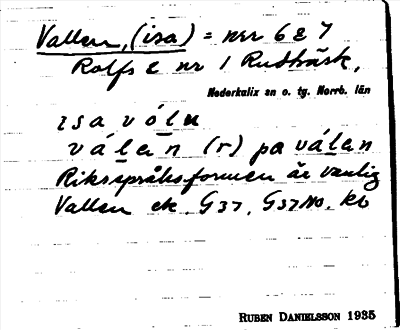 Vallen, (isa) = nrr 6 & 7
Rolfs & nr 1 Rudträsk,
Nederkalix sn o. tg. Norrb. län
ɪsa vóln
válen (r) på válen
Riksspråksformen är vanlig
Vallen ek. G37, G37 No. kb
RUBEN DANIELSSON 1935